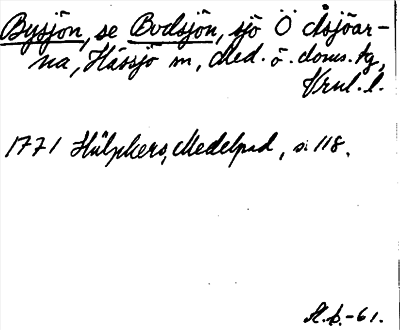 Bysjön, se Bodsjön, sjö Ö Åsjöar-
na, Hässjö sn, Med. ö. doms. tg,
Vrnl. l.
1771 Hülphers, Medelpad, s. 118.
-61.